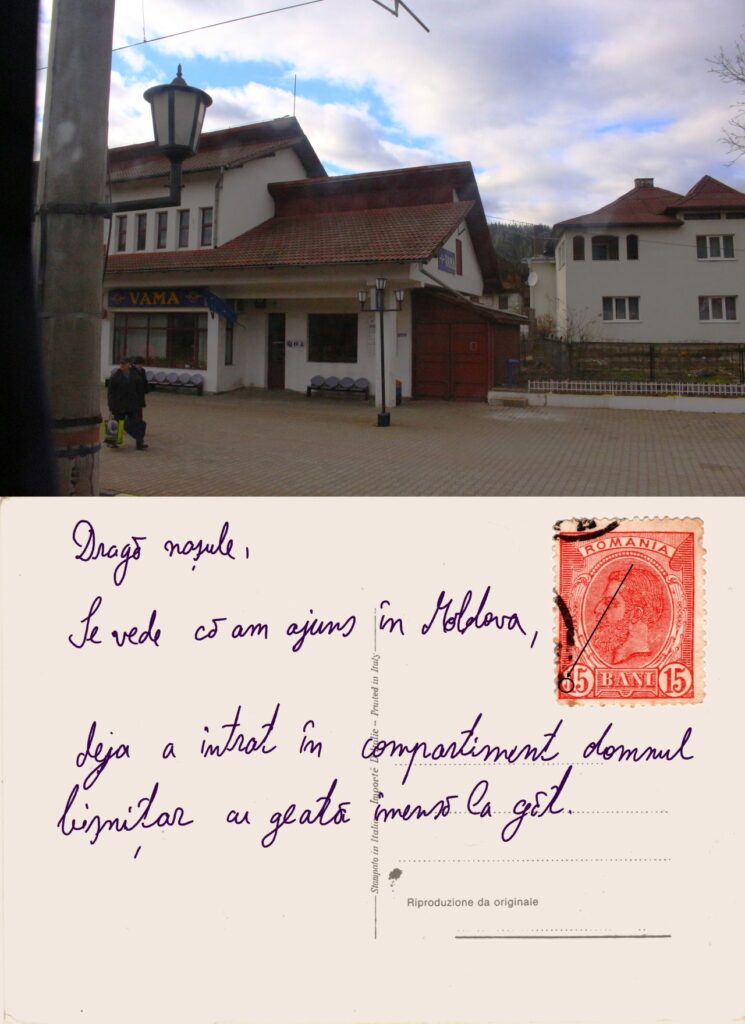 VAMA
VAMA
Dragă nașule,
Se vede că am ajuns în Moldova,
deja a intrat în compartiment domnul
bișnițar cu geată imensă la gât.
ROMANIA
15 BANI 15
Stampato in Italia – Importé D'Italie – Printed in Italy
Riproduzione da originale